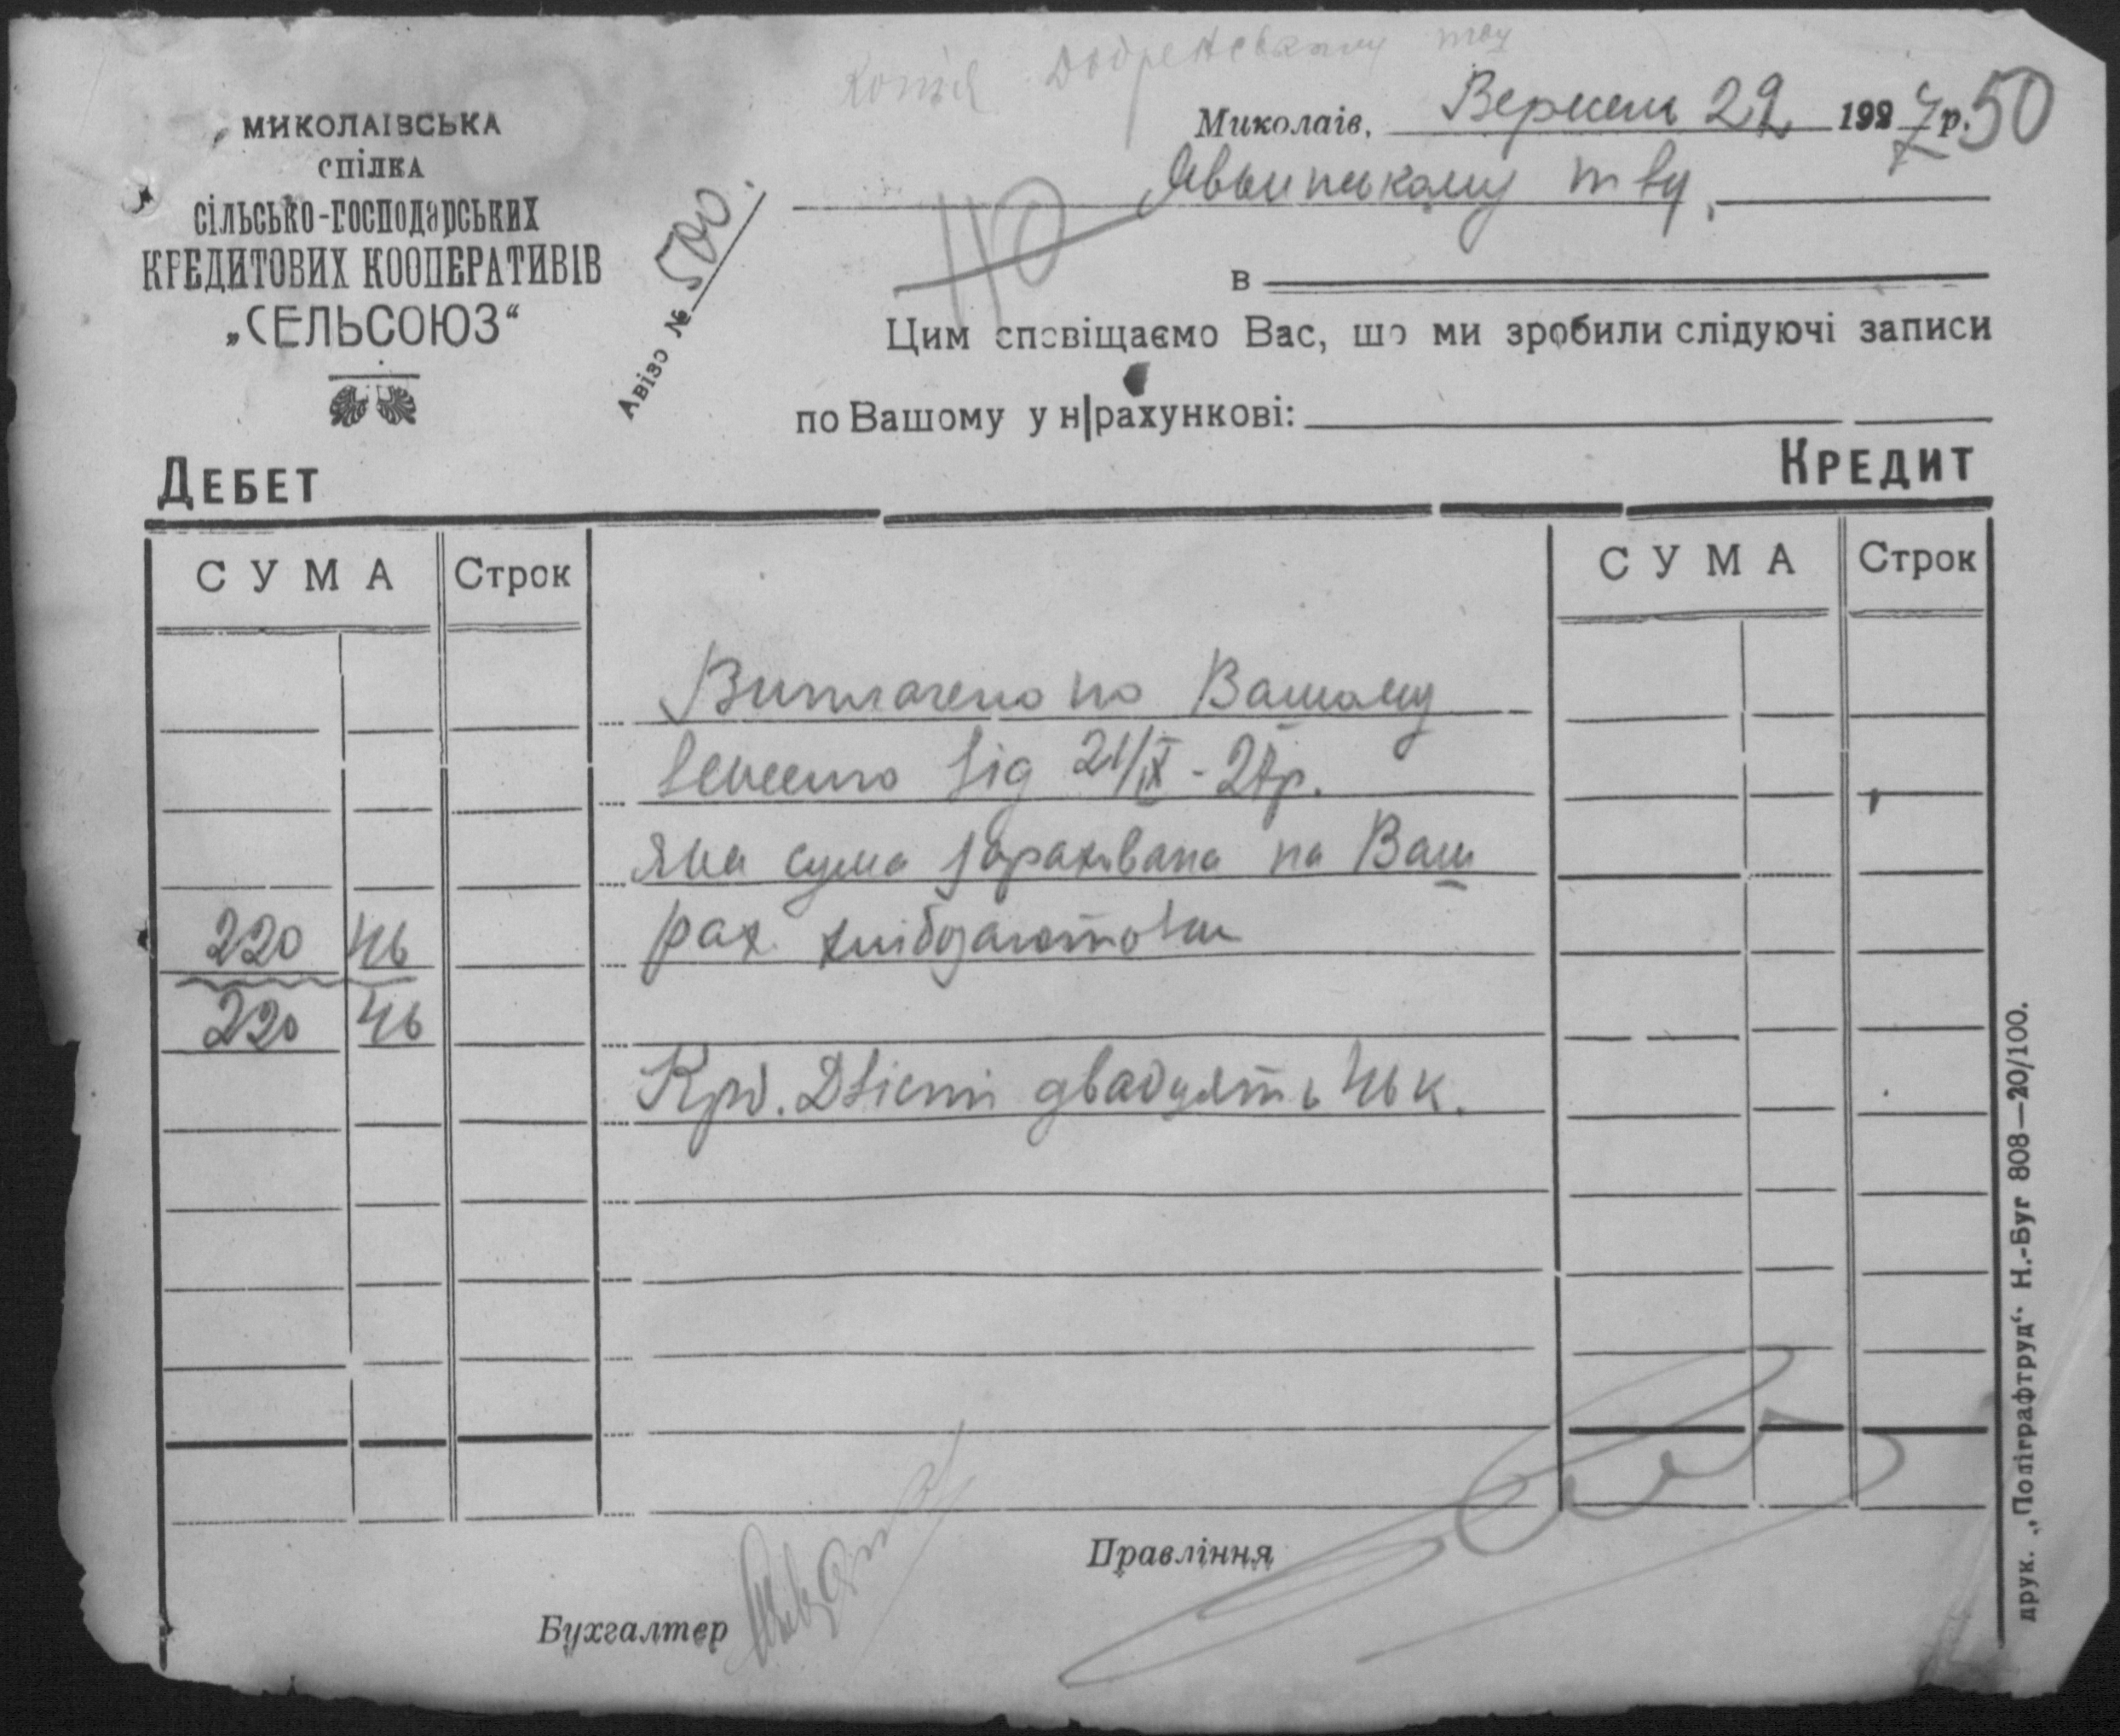 Копія Добренському тву
МИКОЛАЇВСЬКА
СПІЛКА
СІЛЬСЬКО-ГОСПОДАРСЬКИХ
КРЕДИТОВИХ КООПЕРАТИВІВ
„СЕЛЬСОЮЗ“
Авізо № 500.
Миколаїв, Вересень 22 1927 р. 50
тву
40
в
Цим сповіщаємо Вас, що ми зробили слідуючі записи
по Вашому у н|рахункові:
ДЕБЕТ
КРЕДИТ
СУМА Строк СУМА Строк
Виплачено по Вашому
від 21/IX - 27р.
яка сума зарахована на Ваш
220 46 рах. хлібозаготовки
220 46
Крб. Двісті двадцять 46 к.
Правління
Бухгалтер
друк. „Поліграфтруд“ Н.-Буг 808—20/100.